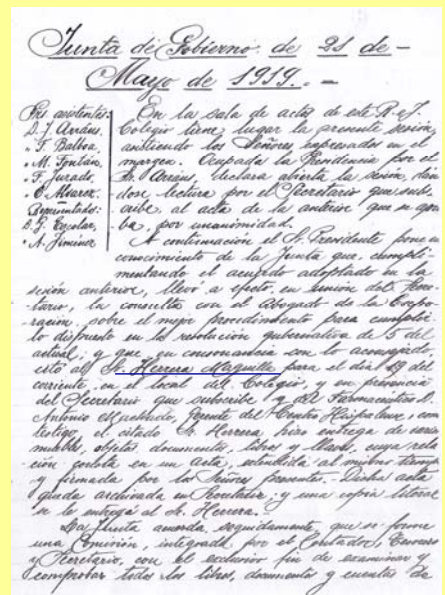 Junta de Gobierno de 21 de-
Mayo de 1919.-
Sres. asistentes:
D. J. Arráns.
" F. Balboa.
" M. Fontán.
" F. Jurado.
" E. Alvarez.
Representado:
D. J. Escolar.
" A. Jiménez
En la sala de actos de este R. e I.
Colegio tiene lugar la presente sesión,
asistiendo los Señores expresados en el
margen. Ocupada la Presidencia por el
Sr. Arráns, declara abierta la sesión, dán
dose lectura por el Secretario que sus-
cribe, al acta de la anterior que se apro
ba, por unanimidad.
A continuación el Sr. Presidente pone en
conocimiento de la Junta que, cumpli-
mentando el acuerdo adoptado en la
sesión anterior, llevó a efecto, en unión del Secre-
tario, la consulta con el Abogado de la Corpo-
ración, sobre el mejor procedimiento para cumplir
lo dispuesto en la resolución gubernativa de 5 del
actual, y que, en consonancia con lo aconsejado,
citó al Sr. Herrera Maguilla para el día 19 del
corriente, en el local del Colegio, y en presencia
del Secretario que suscribe y del Farmacéutico D.
Antonio Machado, Gerente del Centro Hispalense, com
testigo, el citado Sr. Herrera hizo entrega de
muebles, objetos, documentos, libros y llaves, cuya rela-
ción consta en un acta, extendida al mismo tiempo
y firmada por los Señores presentes.- Dicha acta
queda archivada en Secretaría; y una copia literal
se le entregó al Sr. Herrera.
La Junta acuerda, seguidamente, que se forme
una Comisión, integrada por el Contador, Tesorero
y Secretario, con el exclusivo fin de examinar y
comprobar todos los libros, documentos y cuentas de